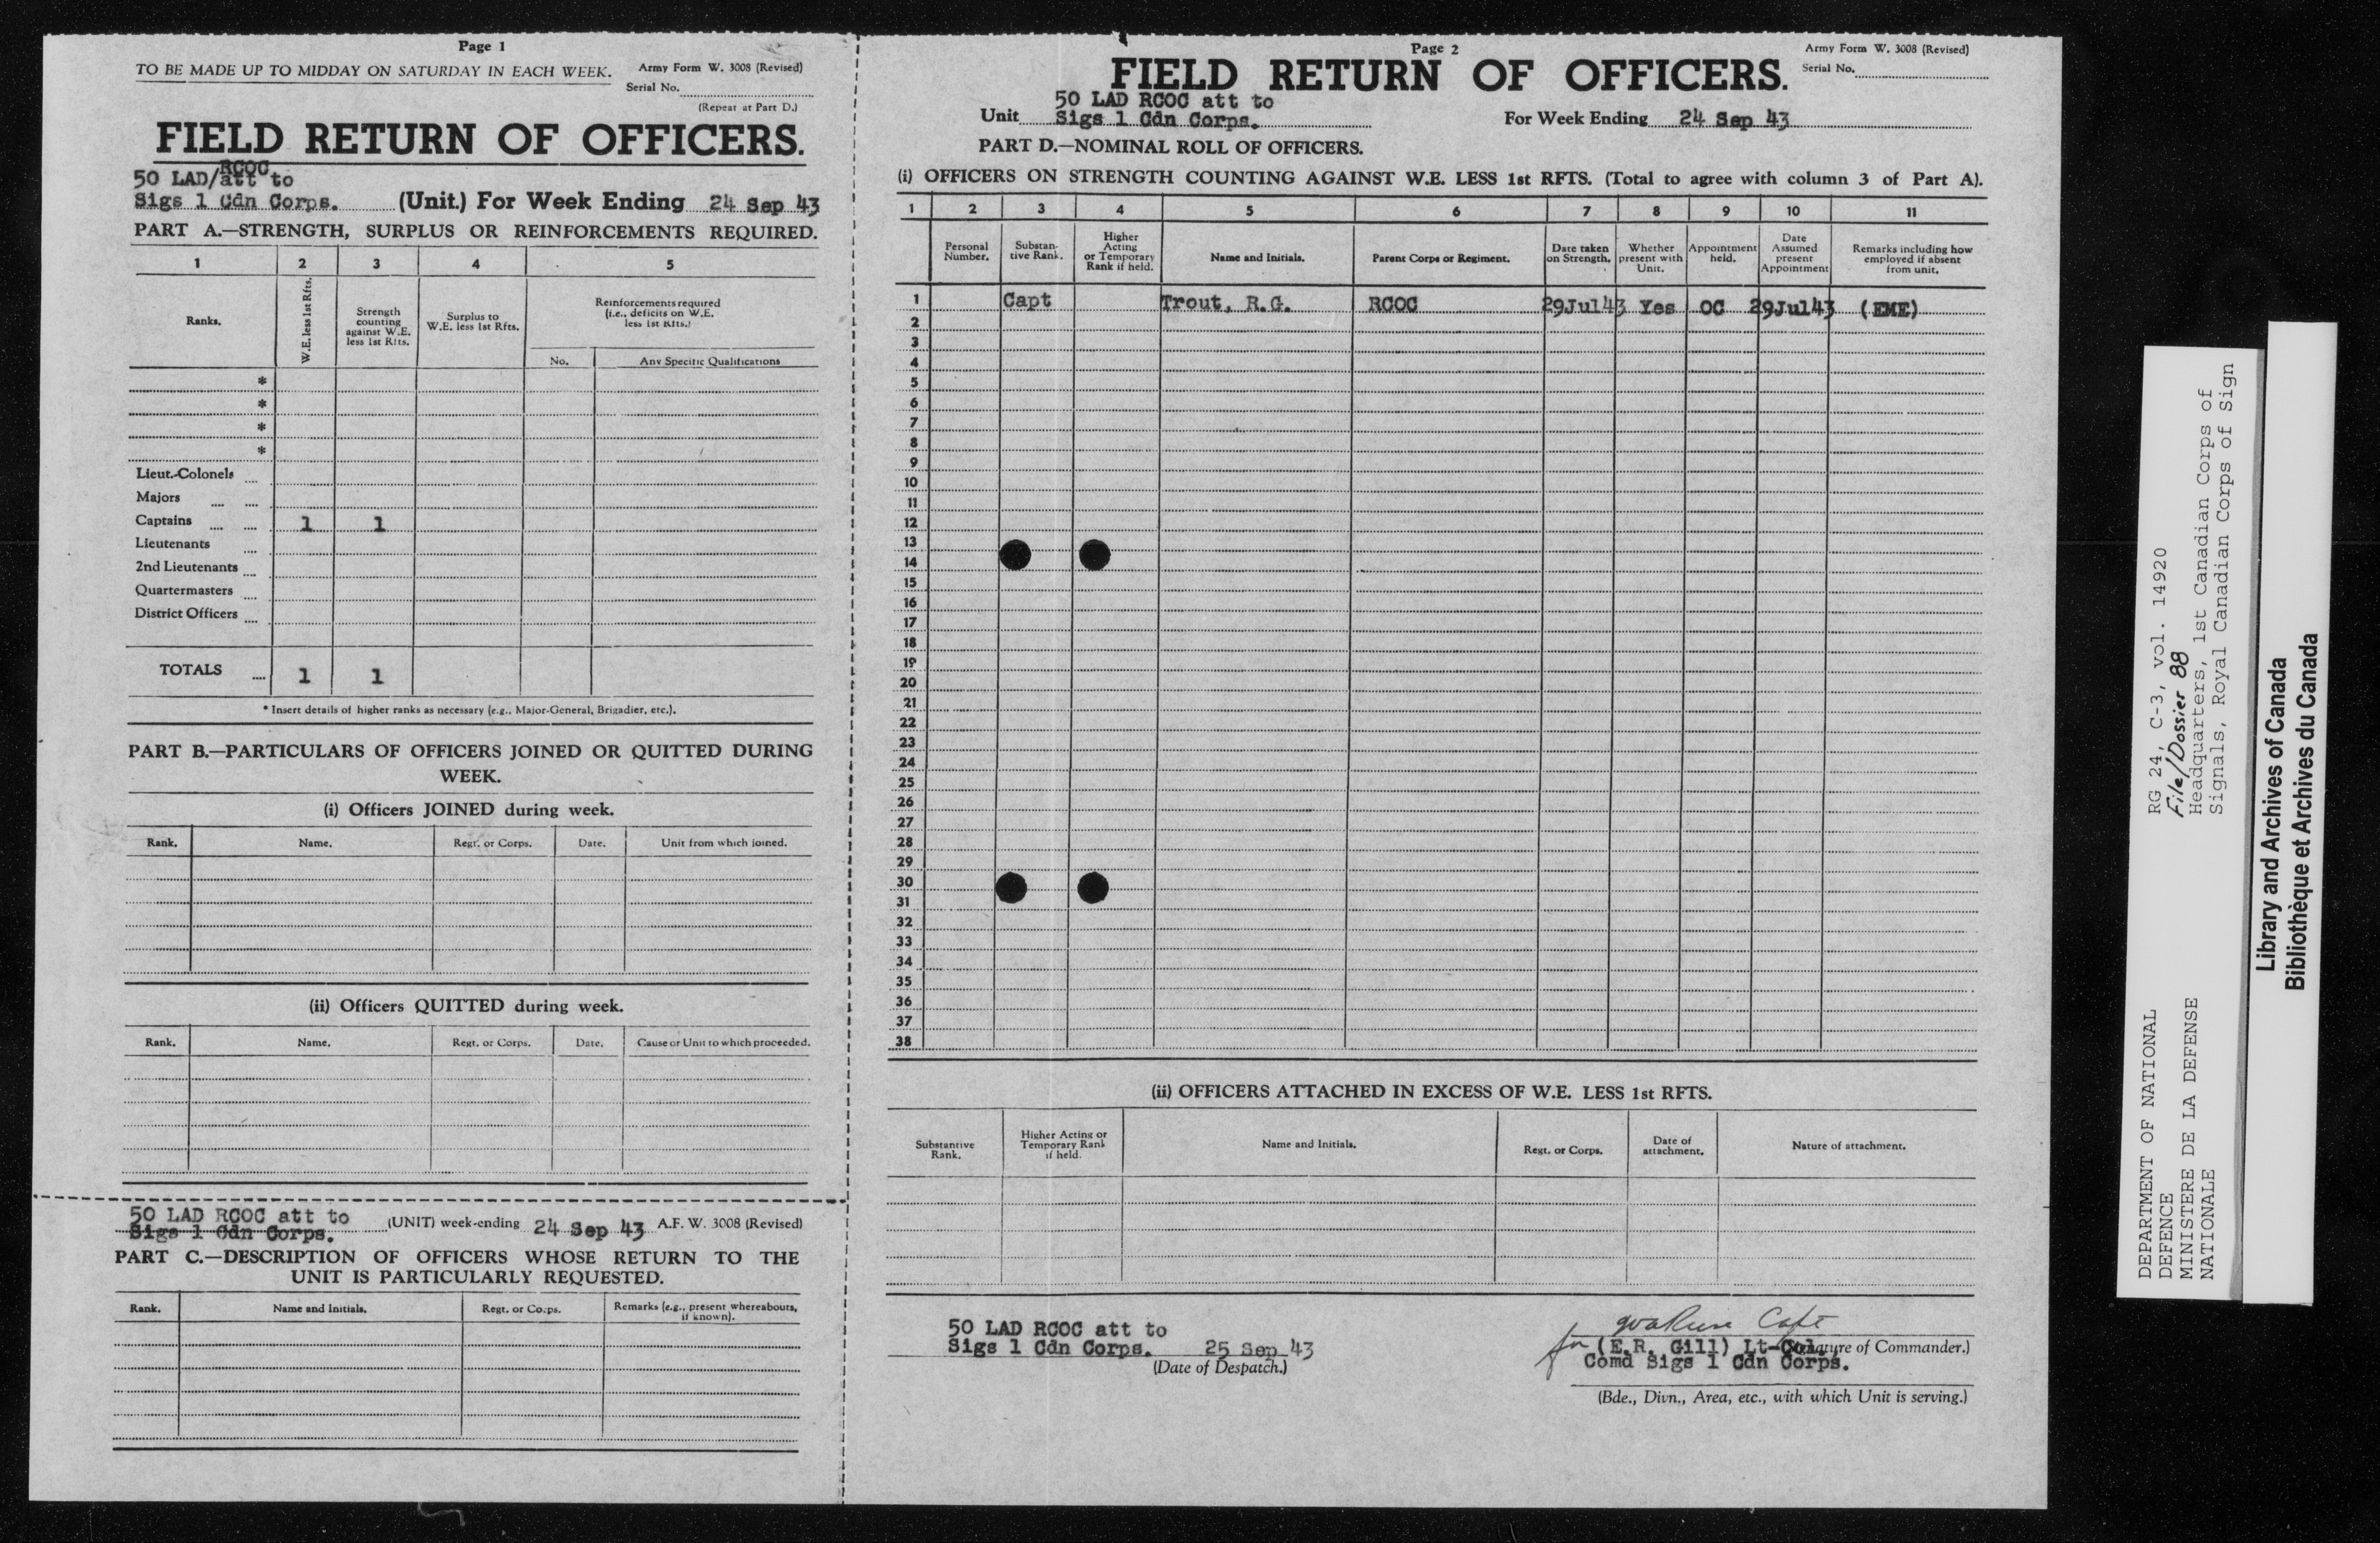 Page 1
TO BE MADE UP TO MIDDAY ON SATURDAY IN EACH WEEK.
Army Form W. 3008 (Revised)
Serial No.
(Repeat at Part D.)
FIELD RETURN OF OFFICERS.
RCOC
50 LAD/att to
Sigs 1 Cdn Corps. (Unit.) For Week Ending 24 Sep 43
PART A.—STRENGTH, SURPLUS OR REINFORCEMENTS REQUIRED.
1 2 3 4 5
Ranks.
W.E. less 1st Rfts.
Strength counting against W.E. less 1st Rfts.
Surplus to W.E. less 1st Rfts.
Reinforcements required (i.e., deficits on W.E. less 1st Rfts.)
No. Any Specific Qualifications
*
*
*
*
Lieut.-Colonels ....
Majors .... ....
Captains .... .... 1 1
Lieutenants ....
2nd Lieutenants ....
Quartermasters ....
District Officers ....
TOTALS .... 1 1
* Insert details of higher ranks as necessary (e.g., Major-General, Brigadier, etc.).
PART B.—PARTICULARS OF OFFICERS JOINED OR QUITTED DURING
WEEK.
(i) Officers JOINED during week.
Rank. Name. Regt. or Corps. Date. Unit from which joined.
(ii) Officers QUITTED during week.
Rank. Name. Regt. or Corps. Date. Cause or Unit to which proceeded.
50 LAD RCOC att to
Sigs 1 Cdn Corps. (UNIT) week-ending 24 Sep 43 A.F. W. 3008 (Revised)
PART C.—DESCRIPTION OF OFFICERS WHOSE RETURN TO THE
UNIT IS PARTICULARLY REQUESTED.
Rank. Name and Initials. Regt. or Corps. Remarks (e.g., present whereabouts, if known).
Page 2
Army Form W. 3008 (Revised)
FIELD RETURN OF OFFICERS.
Serial No.
50 LAD RCOC att to
Unit Sigs 1 Cdn Corps. For Week Ending 24 Sep 43
PART D.—NOMINAL ROLL OF OFFICERS.
(i) OFFICERS ON STRENGTH COUNTING AGAINST W.E. LESS 1st RFTS. (Total to agree with column 3 of Part A).
1 2 3 4 5 6 7 8 9 10 11
Personal Number.
Substantive Rank.
Higher Acting or Temporary Rank if held.
Name and Initials.
Parent Corps or Regiment.
Date taken on Strength.
Whether present with Unit.
Appointment held.
Date Assumed present Appointment
Remarks including how employed if absent from unit.
1 Capt Trout, R.G. RCOC 29Jul43 Yes OC 29Jul43 (EME)
2
3
4
5
6
7
8
9
10
11
12
13
14
15
16
17
18
19
20
21
22
23
24
25
26
27
28
29
30
31
32
33
34
35
36
37
38
(ii) OFFICERS ATTACHED IN EXCESS OF W.E. LESS 1st RFTS.
Substantive Rank.
Higher Acting or Temporary Rank if held.
Name and Initials.
Regt. or Corps.
Date of attachment.
Nature of attachment.
50 LAD RCOC att to
Sigs 1 Cdn Corps. 25 Sep 43
(Date of Despatch.)
Capt
for (E.R. Gill) Lt-Col. (Signature of Commander.)
Comd Sigs 1 Cdn Corps.
(Bde., Divn., Area, etc., with which Unit is serving.)
DEPARTMENT OF NATIONAL
DEFENCE
MINISTERE DE LA DEFENSE
NATIONALE
RG 24, C-3, vol. 14920
File/Dossier 88
Headquarters, 1st Canadian Corps of
Signals, Royal Canadian Corps of Sign
Library and Archives of Canada
Bibliothèque et Archives du Canada